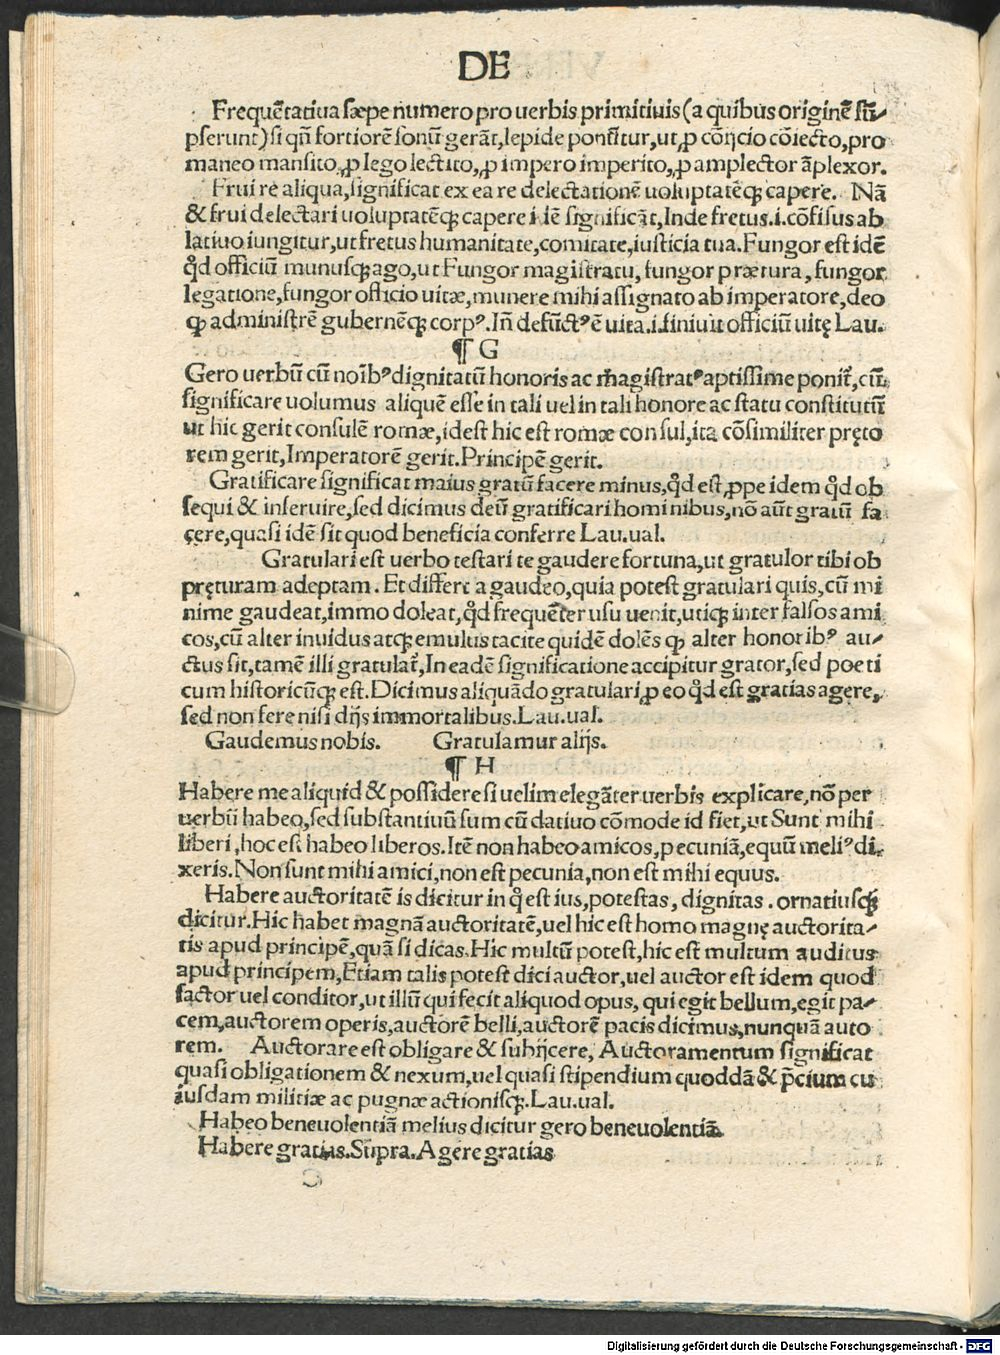 DE
Frequētatiua sæpe numero pro uerbis primitiuis (a quibus originē sū⸗
pserunt) si qñ fortiorē sonū gerāt, lepide ponūtur, ut, ꝓ cōijcio cōiecto, pro
maneo mansito, ꝓ lego lectito, ꝓ impero imperito, ꝓ amplector āplexor.
Frui re aliqua, significat ex ea re delectationē uoluptatēqꝫ capere. Nā
& frui delectari uoluptatēqꝫ capere idē significāt, Inde fretus .i. cōfisus ab
latiuo iungitur, ut fretus humanitate, comitate, iusticia tua. Fungor est idē
qd̄ officiū munusqꝫ ago, ut Fungor magistratu, fungor prætura, fungor
legatione, fungor officio uitæ, munere mihi assignato ab imperatore, deo
qꝫ administrē gubernēqꝫ corpꝰ. Iñ defūctꝰ ē uita .i. finiuit officiū uitę Lau.
¶ G
Gero uerbū cū noībꝰ dignitatū honoris ac magistratꝰ aptissime ponit᷑, cū
significare uolumus aliquē esse in tali uel in tali honore ac statu constitutū
ut hic gerit consulē romæ, idest hic est romæ consul, ita cōsimiliter pręto
rem gerit, Imperatorē gerit. Principē gerit.
Gratificare significat maius gratū facere minus, qd̄ est ꝓpe idem qd̄ ob
sequi & inseruire, sed dicimus deū gratificari hominibus, nō aūt gratū fa
cere, quasi idē sit quod beneficia conferre Lau. ual.
Gratulari est uerbo testari te gaudere fortuna, ut gratulor tibi ob
pręturam adeptam. Et differt a gaudeo, quia potest gratulari quis, cū mi
nime gaudeat, immo doleat, qd̄ frequēter usu uenit, utiqꝫ inter falsos ami
cos, cū alter inuidus atqꝫ emulus tacite quidē dolēs qꝫ alter honoribꝰ au⸗
ctus sit, tamē illi gratulat᷑, In eadē significatione accipitur grator, sed poeti
cum historicūqꝫ est. Dicimus aliquādo gratulari ꝓ eo qd̄ est gratias agere,
sed non fere nisi dijs immortalibus. Lau. ual.
Gaudemus nobis. Gratulamur alijs.
¶ H
Habere me aliquid & possidere si uelim elegāter uerbis explicare, nō per
uerbū habeo, sed substantiuū sum cū datiuo cōmode id fiet, ut Sunt mihi
liberi, hoc est habeo liberos. Itē non habeo amicos, pecuniā, equū meliꝰ di
xeris. Non sunt mihi amici, non est pecunia, non est mihi equus.
Habere auctoritatē is dicitur in q̊ est ius, potestas, dignitas. ornatiusqꝫ
dicitur. Hic habet magnā auctoritatē, uel hic est homo magnę auctorita⸗
tis apud principē, quā si dicas. Hic multū potest, hic est multum auditus
apud principem, Etiam talis potest dici auctor, uel auctor est idem quod
factor uel conditor, ut illū qui fecit aliquod opus, qui egit bellum, egit pa⸗
cem, auctorem operis, auctorē belli, auctorē pacis dicimus, nunquā auto
rem. Auctorare est obligare & subijcere, Auctoramentum significat
quasi obligationem & nexum, uel quasi stipendium quoddā & p̄cium cu
iusdam militiæ ac pugnæ actionisqꝫ. Lau. ual.
Habeo beneuolentiā melius dicitur gero beneuolentiā.
Habere gratias. Supra. Agere gratias
C
Digitalisierung gefördert durch die Deutsche Forschungsgemeinschaft - DFG